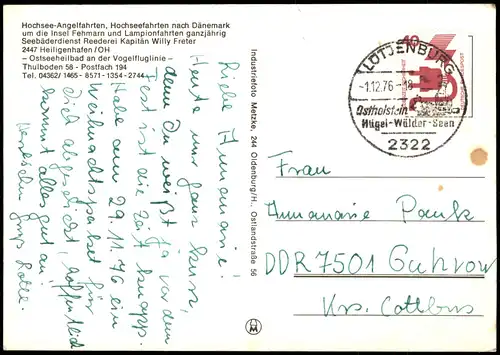 Hochsee-Angelfahrten, Hochseefahrten nach Dänemark
um die Insel Fehmarn und Lampionfahrten ganzjährig
Seebäderdienst Reederei Kapitän Willy Freter
2447 Heiligenhafen/OH
– Ostseeheilbad an der Vogelfluglinie –
Thulboden 58 - Postfach 194
Tel. 04362/1465 - 8571 - 1354 - 2744
Liebe Annemarie!
Heute nur ganz kurz,
denn Du weißt ja vor dem
Fest ist die Zeit knapp.
Habe am 29.11.76 ein
Weihnachtspaket für
Dich abgeschickt, hoffentlich
kommt alles gut an!
Herzlichen
Gruß Lotte.
Industriefoto Metzke, 244 Oldenburg/H., Ostlandstraße 56
40
LÜTJENBURG
-1.12.76-18
Ostholstein
Hügel-Wälder-Seen
2322
Frau
Annemarie
DDR 7501 Guhrow
Krs. Cottbus